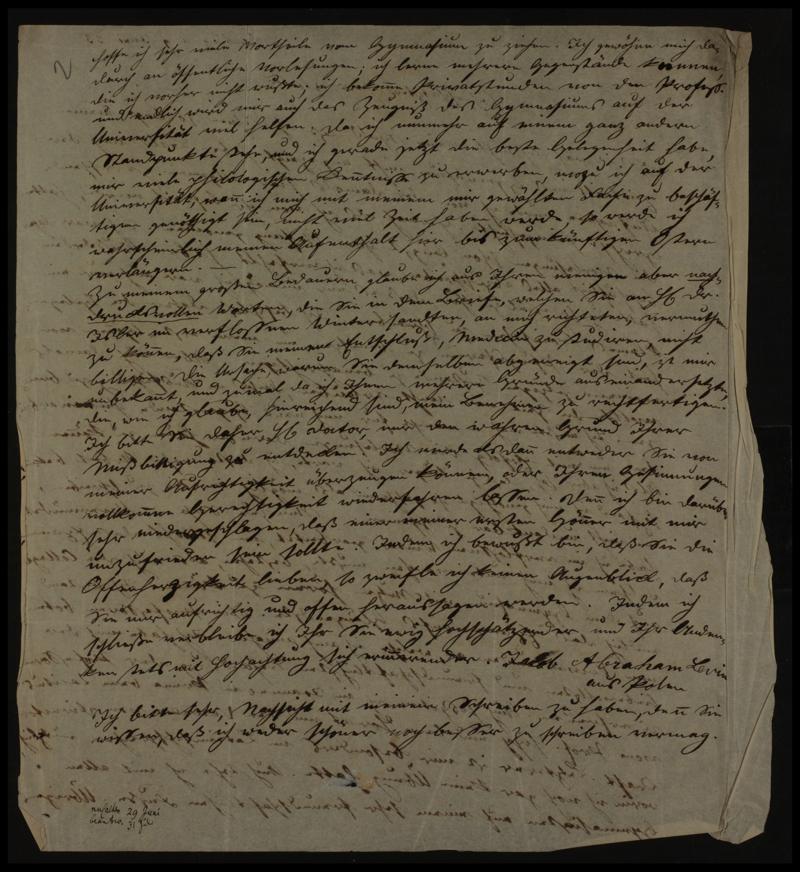 hoffe ich sehr viele Vortheile vom Gymnasium zu ziehen. Ich gewöhne mich da-
durch an öffentliche Vorlesungen; ich lerne mehrere Gegenstände kennen,
die ich vorher nicht wußte; ich bekomme Privatstunden von den Profess.
und endlich wird mir auch das Zeugniß des Gymnasiums auf der
Universität viel helfen. Da ich nunmehr auf einem ganz andern
Standpunkte stehe, und ich gerade jetzt die beste Gelegenheit habe,
mir viele philologischen Kenntniße zu erwerben, wozu ich auf der
Universität, wenn ich mich mit meinem mir gewählten Fache zu beschäf-
tigen genöthigt bin, nicht viel Zeit haben werde, so werde ich
wahrscheinlich meinen Aufenthalt hier bis zum künftigen Ostern
verlängern. —
Zu meinem großen Bedauern glaube ich aus Ihren wenigen aber nach-
drucksvollen Worten, die Sie in dem Briefe, welchen Sie an H. Dr.
Isler im verflossnen Winter sandten, an mich richteten, vermuthen
zu können, daß Sie meinen Entschluß, Medicin zu studiren, nicht
billigen. Die Ursache, warum Sie demselben abgeneigt sind, ist mir
unbekannt, und zumal da ich Ihnen mehrere Gründe auseinandersetzte,
die, wie ich glaube, hinreichend sind, mein Benehmen zu rechtfertigen.
Ich bitte Sie daher, H. Doctor, mir den wahren Grund Ihrer
Mißbilligung zu entdecken. Ich werde alsdann entweder Sie von
meiner Aufrichtigkeit überzeugen können, oder Ihren Gesinnungen
vollkomne Gerechtigkeit wiederfahren lassen. Denn ich bin darüber
sehr niedergeschlagen, daß einer meiner ersten Gönner mit mir
unzufrieden sein sollte. Indem ich bewußt bin, daß Sie die
Offenherzigkeit lieben, so zweifle ich keinen Augenblick, daß
Sie mir aufrichtig und offen heraussagen werden. Indem ich
schließe verbleibe ich Ihr Sie ewig hochschätzender, und Ihr Anden-
ken stets mit Hochachtung sich erinnernder Jakob Abraham Levin
aus Polen
Ich bitte sehr, Nachsicht mit meinem Schreiben zu haben, denn Sie
wissen, daß ich weder schöner noch besser zu schreiben vermag.
29 Juni
beantw. 31